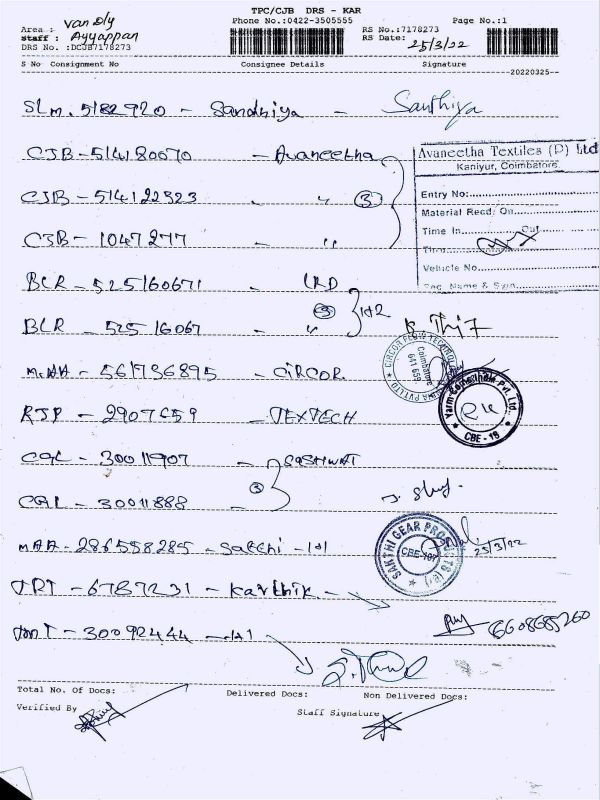 TPC/CJB DRS - KAR
Area : van Dly Phone No.:0422-3505555 Page No.:1
staff : Ayyappan RS No.:7178273
DRS No. :DCJB7178273 RS Date: 25/3/22
S No Consignment No Consignee Details Signature
20220325
SLM. 5182920 - Sandhiya - Santhiya
CJB - 514180070 - Avaneetha
Avaneetha Textiles (P) Ltd
Kaniyur, Coimbatore.
CJB - 514122323 - " (3)
Entry No:
Material Recd. On
Time In Out
CJB - 1047277 - "
Vehicle No.
Sec. Name & Sign
BLR - 525160671 - LRD
1+2
BLR - 52516067 - "
MAA - 561736895 - CIRCOR
CIRCOR FLOW TECHNOLOGY
Coimbatore
641 659
RJP - 2907659 - TEXTECH
Pvt. Ltd.
CBE - 19
CGL - 30011907 - SASHWAT
CGL - 30011888 -
MAA - 286558285 - Sakthi - 1+1
SAKTHI GEAR PRODUCTS
CBE-107
25/3/22
TRT - 6787231 - Karthik -
30092444 - 1+1
Total No. Of Docs: Delivered Docs: Non Delivered Docs:
Verified By Staff Signature